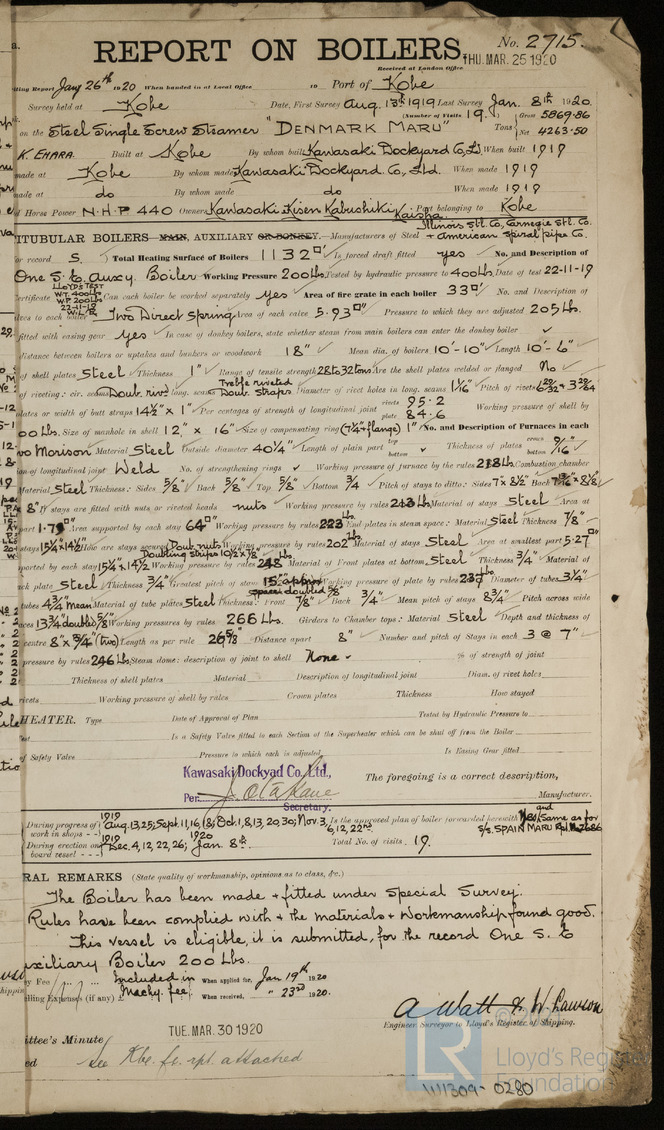 REPORT ON BOILERS.
No. 2715.
Received at London Office
THU. MAR. 25 1920
Writing Report Jany 26th 1920 When handed in at Local Office 19 Port of Kobe
Survey held at Kobe Date, First Survey Aug. 13th 1919 Last Survey Jan. 8th 1920.
(Number of Visits 19.)
on the Steel Single Screw Steamer "DENMARK MARU" Tons Gross 5869.86 Net 4263.50
K. EHARA. Built at Kobe By whom built Kawasaki Dockyard Co., Ld. When built 1919
made at Kobe By whom made Kawasaki Dockyard Co., Ltd. When made 1919
made at do By whom made do When made 1919
Horse Power N.H.P 440 Owners Kawasaki Kisen Kabushiki Kaisha Port belonging to Kobe
Illinois Stl. Co., Carnegie Stl. Co.
ITUBULAR BOILERS MAIN, AUXILIARY OR DONKEY. Manufacturers of Steel + American Spiral pipe Co.
or record S. Total Heating Surface of Boilers 1132□' Is forced draft fitted yes No. and Description of
One S. E. Auxy. Boiler Working Pressure 200 Lbs. Tested by hydraulic pressure to 400 Lbs. Date of test 22-11-19
LLOYD'S TEST
W.T. 400 Lbs
W.P. 200 Lbs
22-11-19
Can each boiler be worked separately Yes Area of fire grate in each boiler 33□' No. and Description of
to each boiler Two Direct Spring Area of each valve 5.93□" Pressure to which they are adjusted 205 Lbs.
fitted with easing gear Yes In case of donkey boilers, state whether steam from main boilers can enter the donkey boiler ✓
distance between boilers or uptakes and bunkers or woodwork 18" Mean dia. of boilers 10'-10" Length 10'-6"
of shell plates Steel Thickness 1" Range of tensile strength 28 to 32 tons Are the shell plates welded or flanged No
of riveting: cir. seams Doub. riv. long. seams Treble riveted Doub. Straps Diameter of rivet holes in long. seams 1 1/16" Pitch of rivets
plates or width of butt straps 14 1/2" x 1" Per centages of strength of longitudinal joint rivets 95.2 plate 84.6 Working pressure of shell by
200 Lbs. Size of manhole in shell 12" x 16" Size of compensating ring (7 1/4"+flange) 1" No. and Description of Furnaces in each
Two Morison Material Steel Outside diameter 40 1/4" Length of plain part top bottom ✓ Thickness of plates crown bottom 9/16"
ion of longitudinal joint Weld No. of strengthening rings ✓ Working pressure of furnace by the rules 218 Lbs. Combustion chamber
Material Steel Thickness: Sides 5/8" Back 5/8" Top 5/8" Bottom 3/4 Pitch of stays to ditto: Sides 7" x 8 1/2" Back
8" If stays are fitted with nuts or riveted heads nuts Working pressure by rules 213 Lbs. Material of stays Steel Area at
part Area supported by each stay 64□" Working pressure by rules 223 End plates in steam space: Material Steel Thickness 7/8"
stays 15 1/4" x 14 1/2" How are stays secured Doub. nuts Working pressure by rules 202 Lbs Material of stays Steel Area at smallest part 5.27□"
Doubling strips 10 1/2 x 7/8
supported by each stay 15 1/4 x 14 1/2 Working pressure by rules Lbs Material of Front plates at bottom Steel Thickness 3/4" Material of
back plate Steel Thickness 3/4" Greatest pitch of stays 15" approx spaces doubled 5/8" Working pressure of plate by rules Diameter of tubes 3 1/4"
tubes 4 3/4" mean Material of tube plates Steel Thickness: Front 7/8" Back 3/4" Mean pitch of stays 8 3/4" Pitch across wide
spaces 13 3/4 doubled 5/8" Working pressures by rules 266 Lbs. Girders to Chamber tops: Material Steel Depth and thickness of
centre 8" x 3/4" (two) Length as per rule 26 5/8" Distance apart 8" Number and pitch of Stays in each 3 @ 7"
pressure by rules 246 Lbs Steam dome: description of joint to shell None ✓ % of strength of joint
Thickness of shell plates Material Description of longitudinal joint Diam. of rivet holes
rivets Working pressure of shell by rules Crown plates Thickness How stayed
HEATER. Type Date of Approval of Plan Tested by Hydraulic Pressure to
Test Is a Safety Valve fitted to each Section of the Superheater which can be shut off from the Boiler
of Safety Valve Pressure to which each is adjusted Is Easing Gear fitted
Kawasaki Dockyad Co., Ltd., The foregoing is a correct description,
Per. Secretary. Manufacturer.
During progress of work in shops - - 1919 Aug. 13, 25; Sept. 11, 16, 18; Oct. 1, 8, 13, 20, 30; Nov. 3, 6, 12, 22nd. Is the approved plan of boiler forwarded herewith Yes and Same as for S/S. SPAIN MARU Rpt. No. 2686
During erection on board vessel - - - 1919 Dec. 4, 12, 22, 26; 1920 Jan. 8th. Total No. of visits 19.
RAL REMARKS (State quality of workmanship, opinions as to class, &c.)
The Boiler has been made + fitted under Special Survey.
Rules have been complied with + the materials + Workmanship found good.
This vessel is eligible, it is submitted, for the record One S. E
Auxiliary Boiler 200 Lbs.
Fee Included in When applied for, Jan 19th 1920
elling Expenses (if any) £ Machy. fee. When received, " 23rd 1920.
A. Watt & W. Lawson
Engineer Surveyor to Lloyd's Register of Shipping.
ittee's Minute TUE. MAR. 30 1920
ed see Kbe. fe. rpt. attached
LR
© 2021
Lloyd's Register
Foundation
W1309-0280